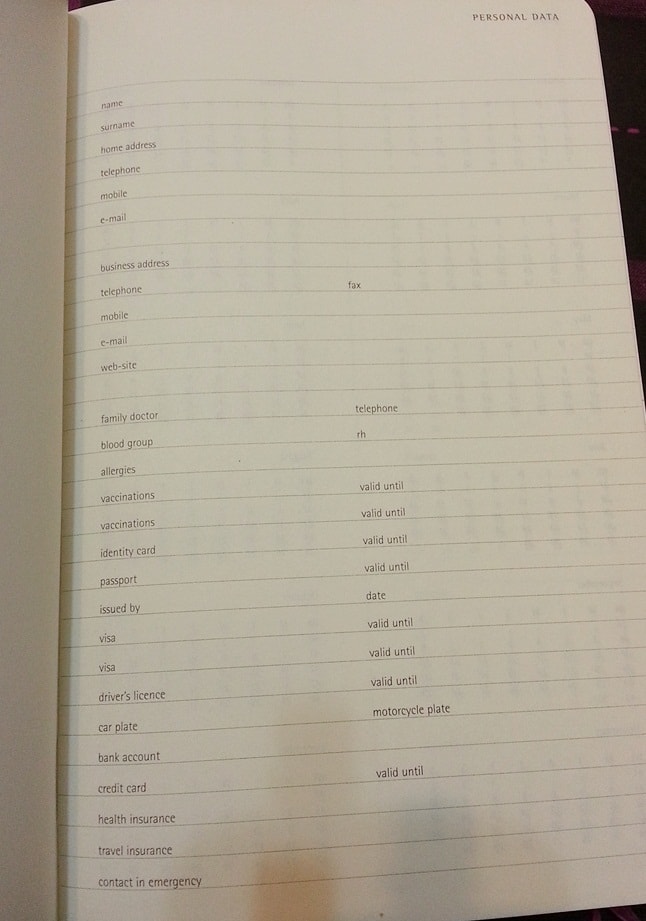 PERSONAL DATA
name
surname
home address
telephone
mobile
e-mail
business address
telephone fax
mobile
e-mail
web-site
family doctor telephone
blood group rh
allergies
vaccinations valid until
vaccinations valid until
identity card valid until
passport valid until
issued by date
visa valid until
visa valid until
driver's licence valid until
car plate motorcycle plate
bank account
credit card valid until
health insurance
travel insurance
contact in emergency